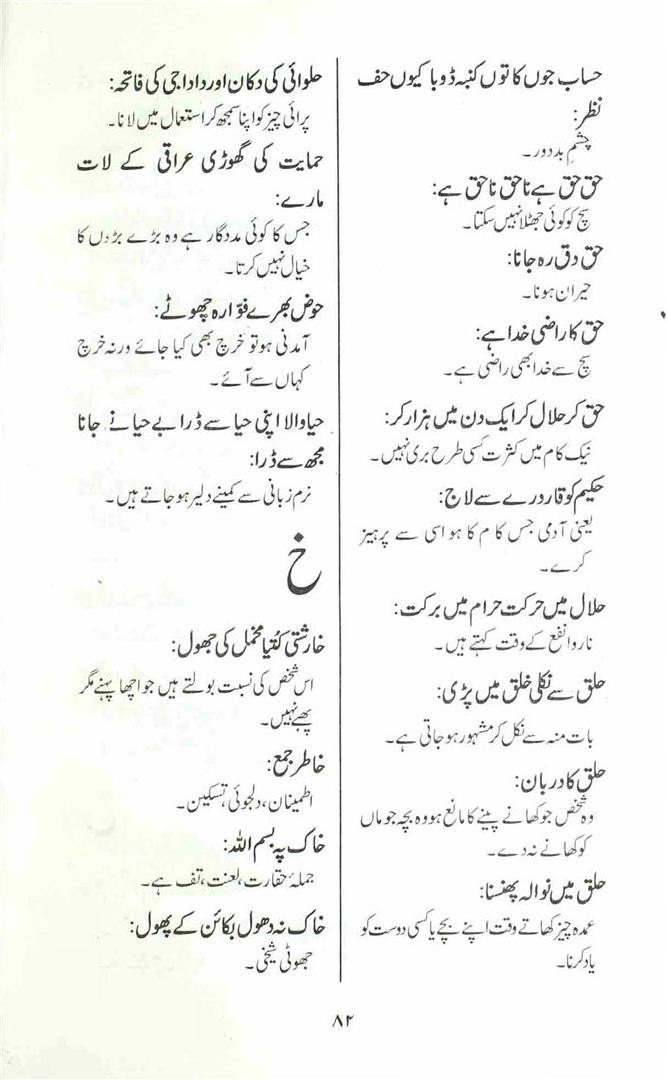 حساب جوں کا توں کنبہ ڈوبا کیوں حف
نظر:
چشمِ بددور۔
حق حق ہے ناحق ناحق ہے:
سچ کو کوئی جھٹلا نہیں سکتا۔
حق دق رہ جانا:
حیران ہونا۔
حق کا راضی خدا ہے:
سچ سے خدا بھی راضی ہے۔
حق کر حلال کر ایک دن میں ہزار کر:
نیک کام میں کثرت کسی طرح بری نہیں۔
حکیم کو قاردرے سے لاج:
یعنی آدمی جس کا م کا ہو اسی سے پرہیز
کرے۔
حلال میں حرکت حرام میں برکت:
ناروا نفع کے وقت کہتے ہیں۔
حلق سے نکلی خلق میں پڑی:
بات منہ سے نکل کر مشہور ہو جاتی ہے۔
حلق کا دربان:
وہ شخص جو کھانے پینے کا مانع ہو وہ بچہ جو ماں
کو کھانے نہ دے۔
حلق میں نوالہ پھنسنا:
عمدہ چیز کھاتے وقت اپنے بچے یا کسی دوست کو
یاد کرنا۔
حلوائی کی دکان اور داداجی کی فاتحہ:
پرائی چیز کو اپنا سمجھ کر استعمال میں لانا۔
حمایت کی گھوڑی عراقی کے لات
مارے:
جس کا کوئی مددگار ہے وہ بڑے بڑوں کا
خیال نہیں کرتا۔
حوض بھرے فوّارہ چھوٹے:
آمدنی ہو تو خرچ بھی کیا جائے ورنہ خرچ
کہاں سے آئے۔
حیا والا اپنی حیا سے ڈرا بے حیا نے جانا
مجھ سے ڈرا:
نرم زبانی سے کمینے دلیر ہو جاتے ہیں۔
خ
خارشتی کُتیا مخمل کی جھول:
اس شخص کی نسبت بولتے ہیں جو اچھا پہنے مگر
پھبے نہیں۔
خاطر جمع:
اطمینان، دلجوئی، تسکین۔
خاک پہ بسم اللہ:
جملۂ حقارت، لعنت، تف ہے۔
خاک نہ دھول بکائن کے پھول:
جھوٹی شیخی۔
۸۲